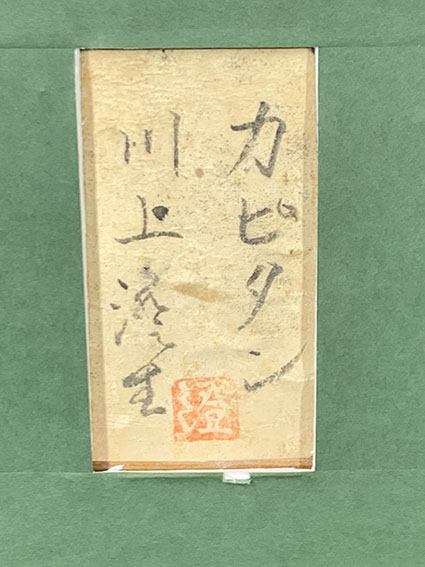 カピタン
川上澄生
澄